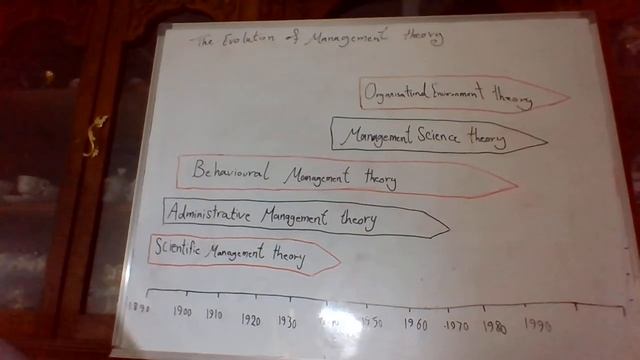 The Evolution of Management theory
Organisational Environment theory
Management Science theory
Behavioural Management theory
Administrative Management theory
Scientific Management theory
1890 1900 1910 1920 1930 1950 1960 1970 1980 1990